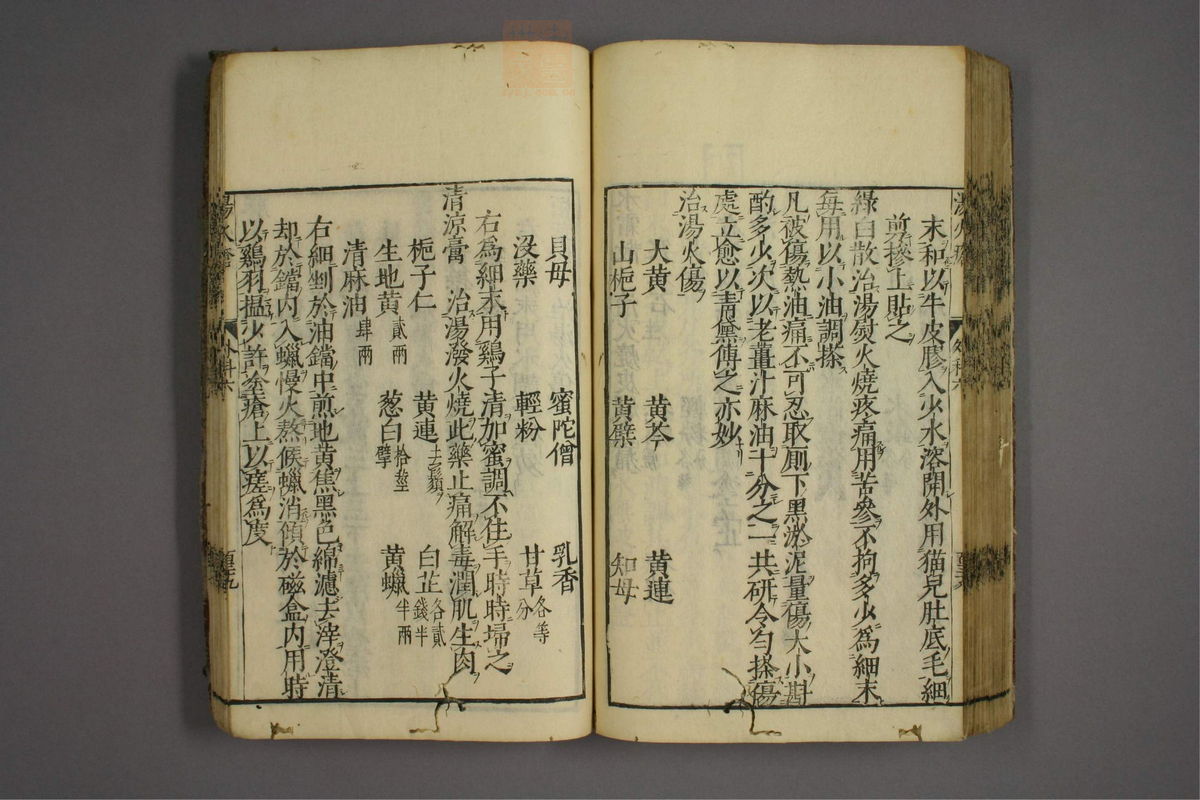 末和以牛皮膠入少水溶開外用猫兒肚底毛細
剪摻上貼之
緑白散治湯熨火燒疼痛用苦參不拘多少為細末
每用以小油調搽
凡被傷熱油痛不可忍取厠下黑淤泥量傷大小斟
酌多少次以老薑汁麻油十分之一共研令勻搽傷
處立愈以青黛傅之亦妙
治湯火傷
大黃　黃芩　黃連
山梔子　黃蘗　知母
貝母　蜜陀僧　乳香
沒藥　輕粉　甘草各等分
右為細末用鷄子清加蜜調不住手時時埽之
清涼膏　治湯發火燒此藥止痛解毒潤肌生肉
梔子仁　黃連去鬚　白芷各貳錢半
生地黃貳兩　葱白拾莖擘　黃蠟半兩
清麻油肆兩
右細剉於油鐺中煎地黃焦黑色綿濾去滓澄清
却於鐺内入蠟慢火熬候蠟消傾於磁盒内用時
以鷄羽揾少許塗瘡上以瘥為度